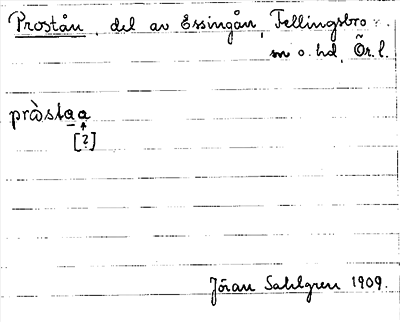 Prostån, del av Essingån, Fellingsbro
sn o. hd, Ör. l.
prà̊staa
[?]
Jöran Sahlgren 1909.